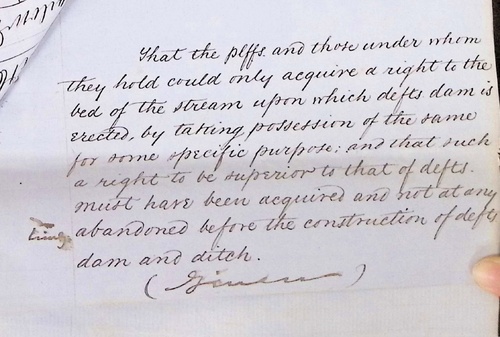 That the plffs. and those under whom
they hold could only acquire a right to the
bed of the stream upon which defts dam is
erected, by taking possession of the same
for some specific purpose; and that such
a right to be superior to that of defts.
must have been acquired and not at any
time abandoned before the construction of defts
dam and ditch.
(Given)